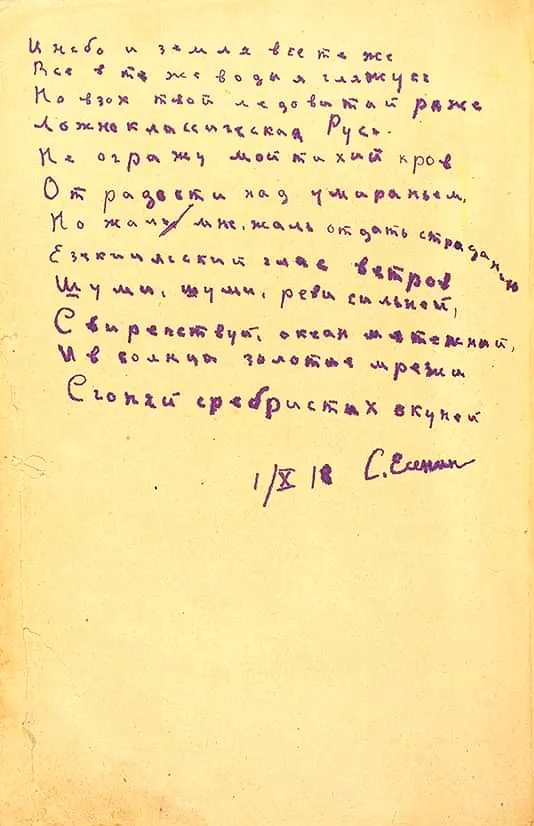 И небо и земля все те же
Все в те же воды я гляжусь
Но взох твой ледовитый реже
Ложноклассическая Русь.
Не огражу мой тихий кров
От радости над умираньем,
Но жаль мне, жаль отдать страданью
Езекиильский глас ветров
Шуми, шуми, реви сильней,
Свирепствуй, океан мятежный,
И в солнца золотые мрежи
Сгоняй сребристых окуней
1/X 18 С. Есенин